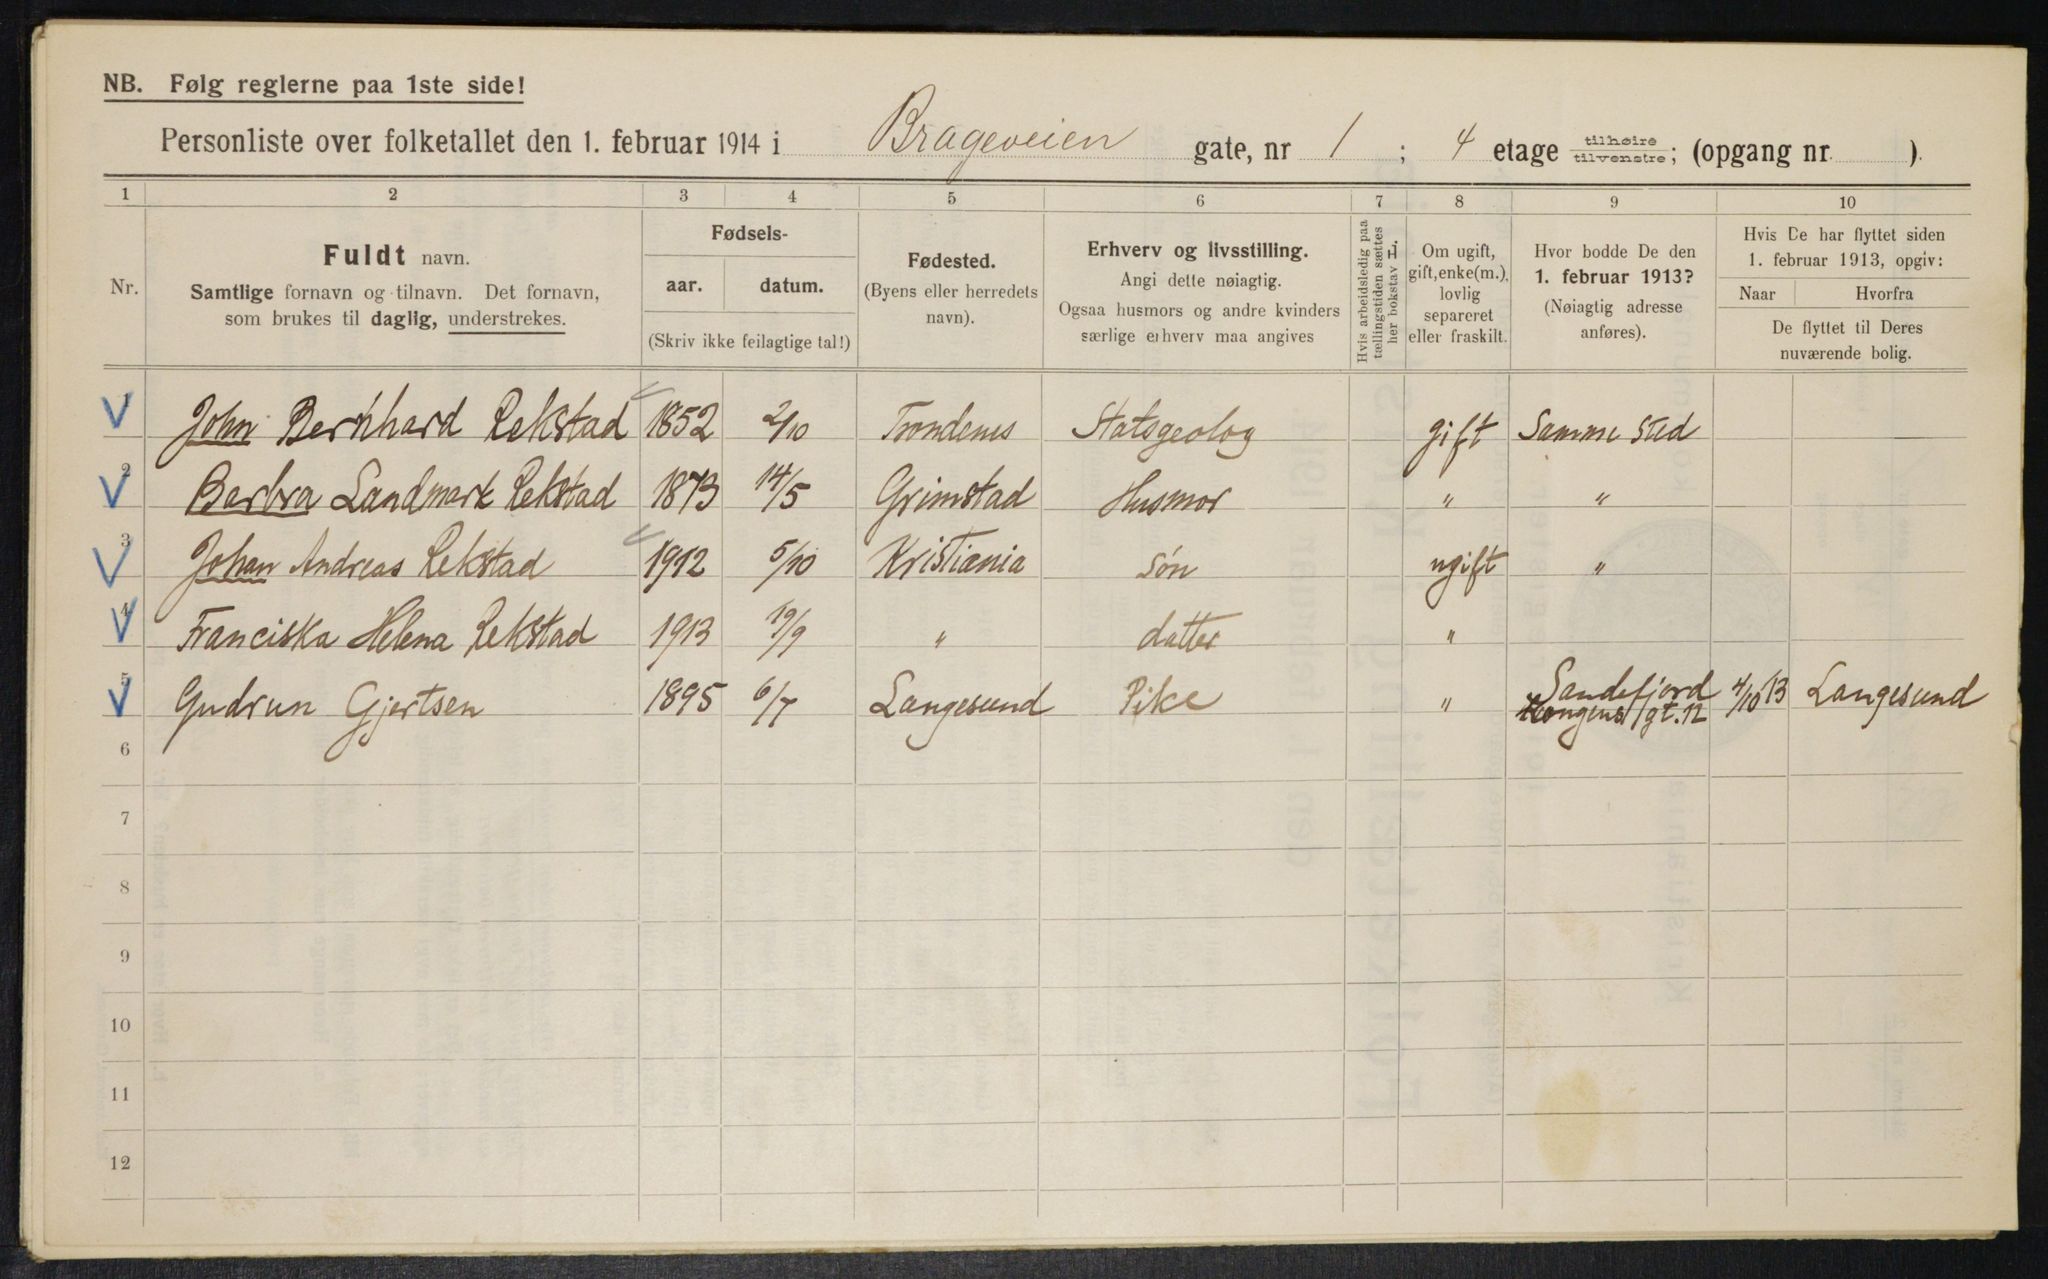 NB. Følg reglerne paa 1ste side!
Personliste over folketallet den 1. februar 1914 i Brageveien gate, nr 1 ; 4 etage tilhøire tilvenstre; (opgang nr. ).
1 2 3 4 5 6 7 8 9 10
Nr.
Fuldt navn.
Samtlige fornavn og tilnavn. Det fornavn,
som brukes til daglig, understrekes.
Fødsels-
aar. datum.
(Skriv ikke feilagtige tal!)
Fødested.
(Byens eller herredets
navn).
Erhverv og livsstilling.
Angi dette nøiagtig.
Ogsaa husmors og andre kvinders
særlige erhverv maa angives
Hvis arbeidsledig paa
tællingstiden sættes
her bokstav L.
Om ugift,
gift, enke(m.),
lovlig
separeret
eller fraskilt.
Hvor bodde De den
1. februar 1913?
(Nøiagtig adresse
anføres).
Hvis De har flyttet siden
1. februar 1913, opgiv:
Naar Hvorfra
De flyttet til Deres
nuværende bolig.
1 John Bernhard Rekstad 1852 2/10 Trondenes Statsgeolog gift Samme sted
2 Barbra Landmark Rekstad 1873 14/5 Grimstad Husmor " "
3 Johan Andreas Rekstad 1912 5/10 Kristiania søn ugift "
4 Franciska Helena Rekstad 1913 19/9 " datter "
5 Gudrun Gjertsen 1895 6/7 Langesund Pike " Sandefjord Kongens gt. 12 4/10 13 Langesund
6
7
8
9
10
11
12